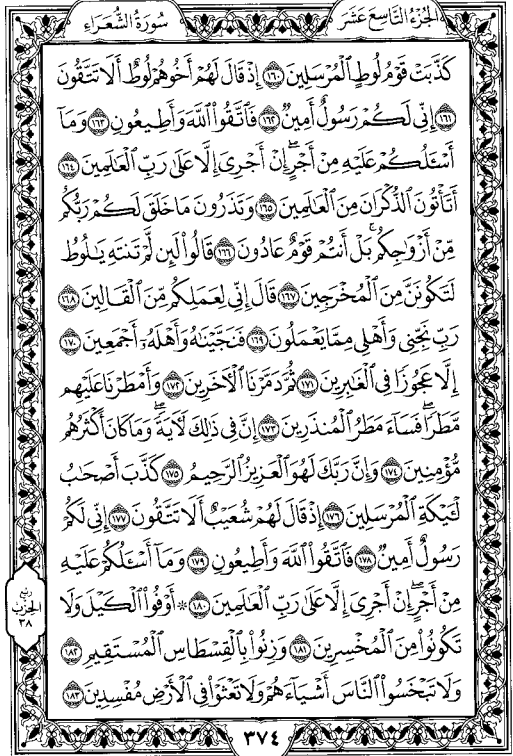 الجزء التاسع عشر
سورة الشعراء
كَذَّبَتْ قَوْمُ لُوطٍ الْمُرْسَلِينَ ١٦٠ إِذْ قَالَ لَهُمْ أَخُوهُمْ لُوطٌ أَلَا تَتَّقُونَ
١٦١ إِنِّي لَكُمْ رَسُولٌ أَمِينٌ ١٦٢ فَاتَّقُوا اللَّهَ وَأَطِيعُونِ ١٦٣ وَمَا
أَسْـَٔلُكُمْ عَلَيْهِ مِنْ أَجْرٍ إِنْ أَجْرِيَ إِلَّا عَلَىٰ رَبِّ الْعَالَمِينَ ١٦٤
أَتَأْتُونَ الذُّكْرَانَ مِنَ الْعَالَمِينَ ١٦٥ وَتَذَرُونَ مَا خَلَقَ لَكُمْ رَبُّكُم
مِّنْ أَزْوَاجِكُم بَلْ أَنتُمْ قَوْمٌ عَادُونَ ١٦٦ قَالُوا لَئِن لَّمْ تَنتَهِ يَالُوطُ
لَتَكُونَنَّ مِنَ الْمُخْرَجِينَ ١٦٧ قَالَ إِنِّي لِعَمَلِكُم مِّنَ الْقَالِينَ ١٦٨
رَبِّ نَجِّنِي وَأَهْلِي مِمَّا يَعْمَلُونَ ١٦٩ فَنَجَّيْنَاهُ وَأَهْلَهُ أَجْمَعِينَ ١٧٠
إِلَّا عَجُوزًا فِي الْغَابِرِينَ ١٧١ ثُمَّ دَمَّرْنَا الْآخَرِينَ ١٧٢ وَأَمْطَرْنَا عَلَيْهِم
مَّطَرًا فَسَاءَ مَطَرُ الْمُنذَرِينَ ١٧٣ إِنَّ فِي ذَٰلِكَ لَآيَةً وَمَا كَانَ أَكْثَرُهُم
مُّؤْمِنِينَ ١٧٤ وَإِنَّ رَبَّكَ لَهُوَ الْعَزِيزُ الرَّحِيمُ ١٧٥ كَذَّبَ أَصْحَابُ
لْـَٔيْكَةِ الْمُرْسَلِينَ ١٧٦ إِذْ قَالَ لَهُمْ شُعَيْبٌ أَلَا تَتَّقُونَ ١٧٧ إِنِّي لَكُمْ
رَسُولٌ أَمِينٌ ١٧٨ فَاتَّقُوا اللَّهَ وَأَطِيعُونِ ١٧٩ وَمَا أَسْـَٔلُكُمْ عَلَيْهِ
مِنْ أَجْرٍ إِنْ أَجْرِيَ إِلَّا عَلَىٰ رَبِّ الْعَالَمِينَ ١٨٠ ۞ أَوْفُوا الْكَيْلَ وَلَا
تَكُونُوا مِنَ الْمُخْسِرِينَ ١٨١ وَزِنُوا بِالْقِسْطَاسِ الْمُسْتَقِيمِ ١٨٢
وَلَا تَبْخَسُوا النَّاسَ أَشْيَاءَهُمْ وَلَا تَعْثَوْا فِي الْأَرْضِ مُفْسِدِينَ ١٨٣
ربع
الحزب
٣٨
٣٧٤